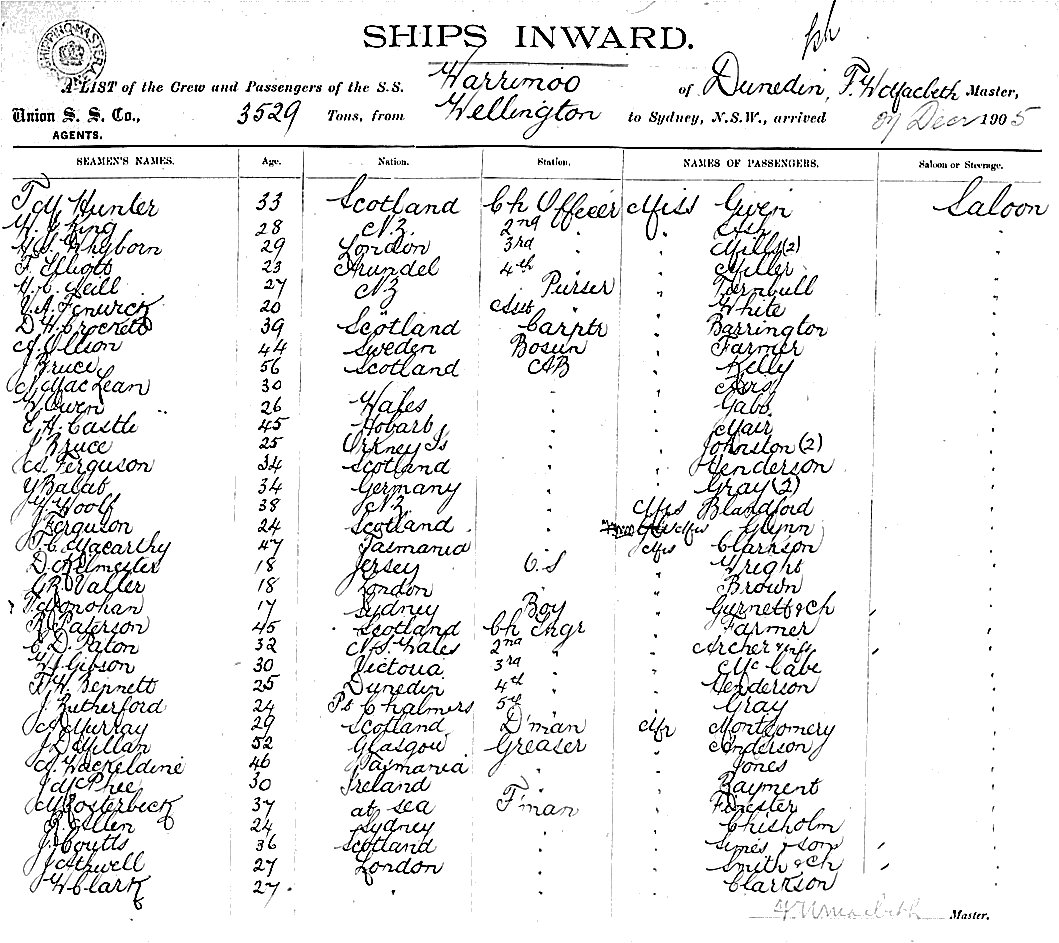 SHIPS INWARD.
A LIST of the Crew and Passengers of the S.S. Warrimoo of Dunedin, Master,
Union S. S. Co., 3529 Tons, from Wellington to Sydney, N.S.W., arrived Decr 1905
AGENTS.
SEAMEN'S NAMES. Age. Nation. Station. NAMES OF PASSENGERS. Saloon or Steerage.
Hunter 33 Scotland Ch Officer Miss Gwen Saloon
King 28 N.Z. 2nd "
Whyborn 29 London 3rd " " Mills (2) "
F. Elliott 23 Arundel 4th " Miller "
Neill 27 NZ Purser " Turnbull "
V. A. Fenwick 20 " Asst " " White "
D. H. Crockett 39 Scotland Carptr " Barrington "
A. Ollson 44 Sweden Bosun " Farmer "
J Bruce 56 Scotland AB " Kelly "
MacLean 30 " " "
W Owen 26 Wales " " Gabb "
Castle 45 Hobart " " Mair "
J Bruce 25 Orkney Is " " Johnston (2) "
Ferguson 34 Scotland " " Henderson "
34 Germany " " Gray (2) "
Woolf 38 NZ " Mrs Blandford "
J Ferguson 24 Scotland " Glynn "
Macarthy 47 Tasmania " Mrs Clarkson "
18 Jersey O S " Wright "
Valler 18 London " " Brown "
17 Sydney Boy " Gurnett & ch "
R Paterson 45 Scotland Ch Engr " Farmer "
D. Paton 32 N.S. Wales 2nd " " Archer & "
W J Gibson 30 Victoria 3rd " " McCabe "
F. W. Bennett 25 Dunedin 4th " " Henderson "
J Rutherford 24 Pt Chalmers 5th " " Gray "
A Murray 29 Scotland D'man Mr Montgomery "
J D Millan 52 Glasgow Greaser " Anderson "
A. Wackeldine 46 Tasmania " " Jones "
J McPhee 30 Ireland " " Rayment "
M Oosterbeck 37 at sea F'man " "
R. Allen 24 Sydney " " Chisholm "
J Coutts 36 Scotland " " Simes & son "
J Atwell 27 London " " Smith & ch "
W Clark 27 " " " Clarkson "
Master.